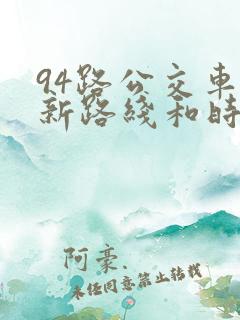 94路公交车
新路线和时
阿豪.
未经同意禁止转载